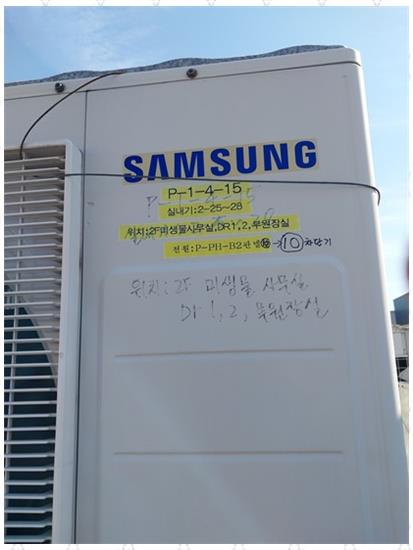 SAMSUNG
P-1-4-15
P-1-4-15
실내기:2-25~28
위치:2F미생물사무실,DR1,2,부원장실
전원:P-PH-B2판넬⑫→⑩차단기
위치:2F 미생물 사무실
Dr 1, 2, 부원장실